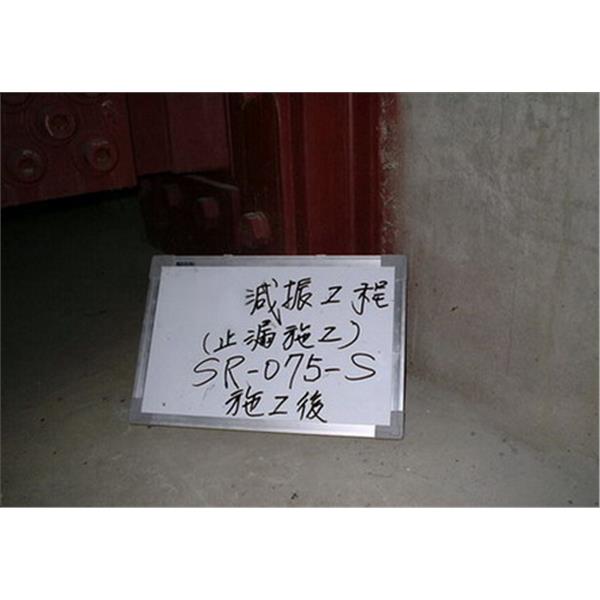 減振工程
(止漏施工)
SR-075-S
施工後